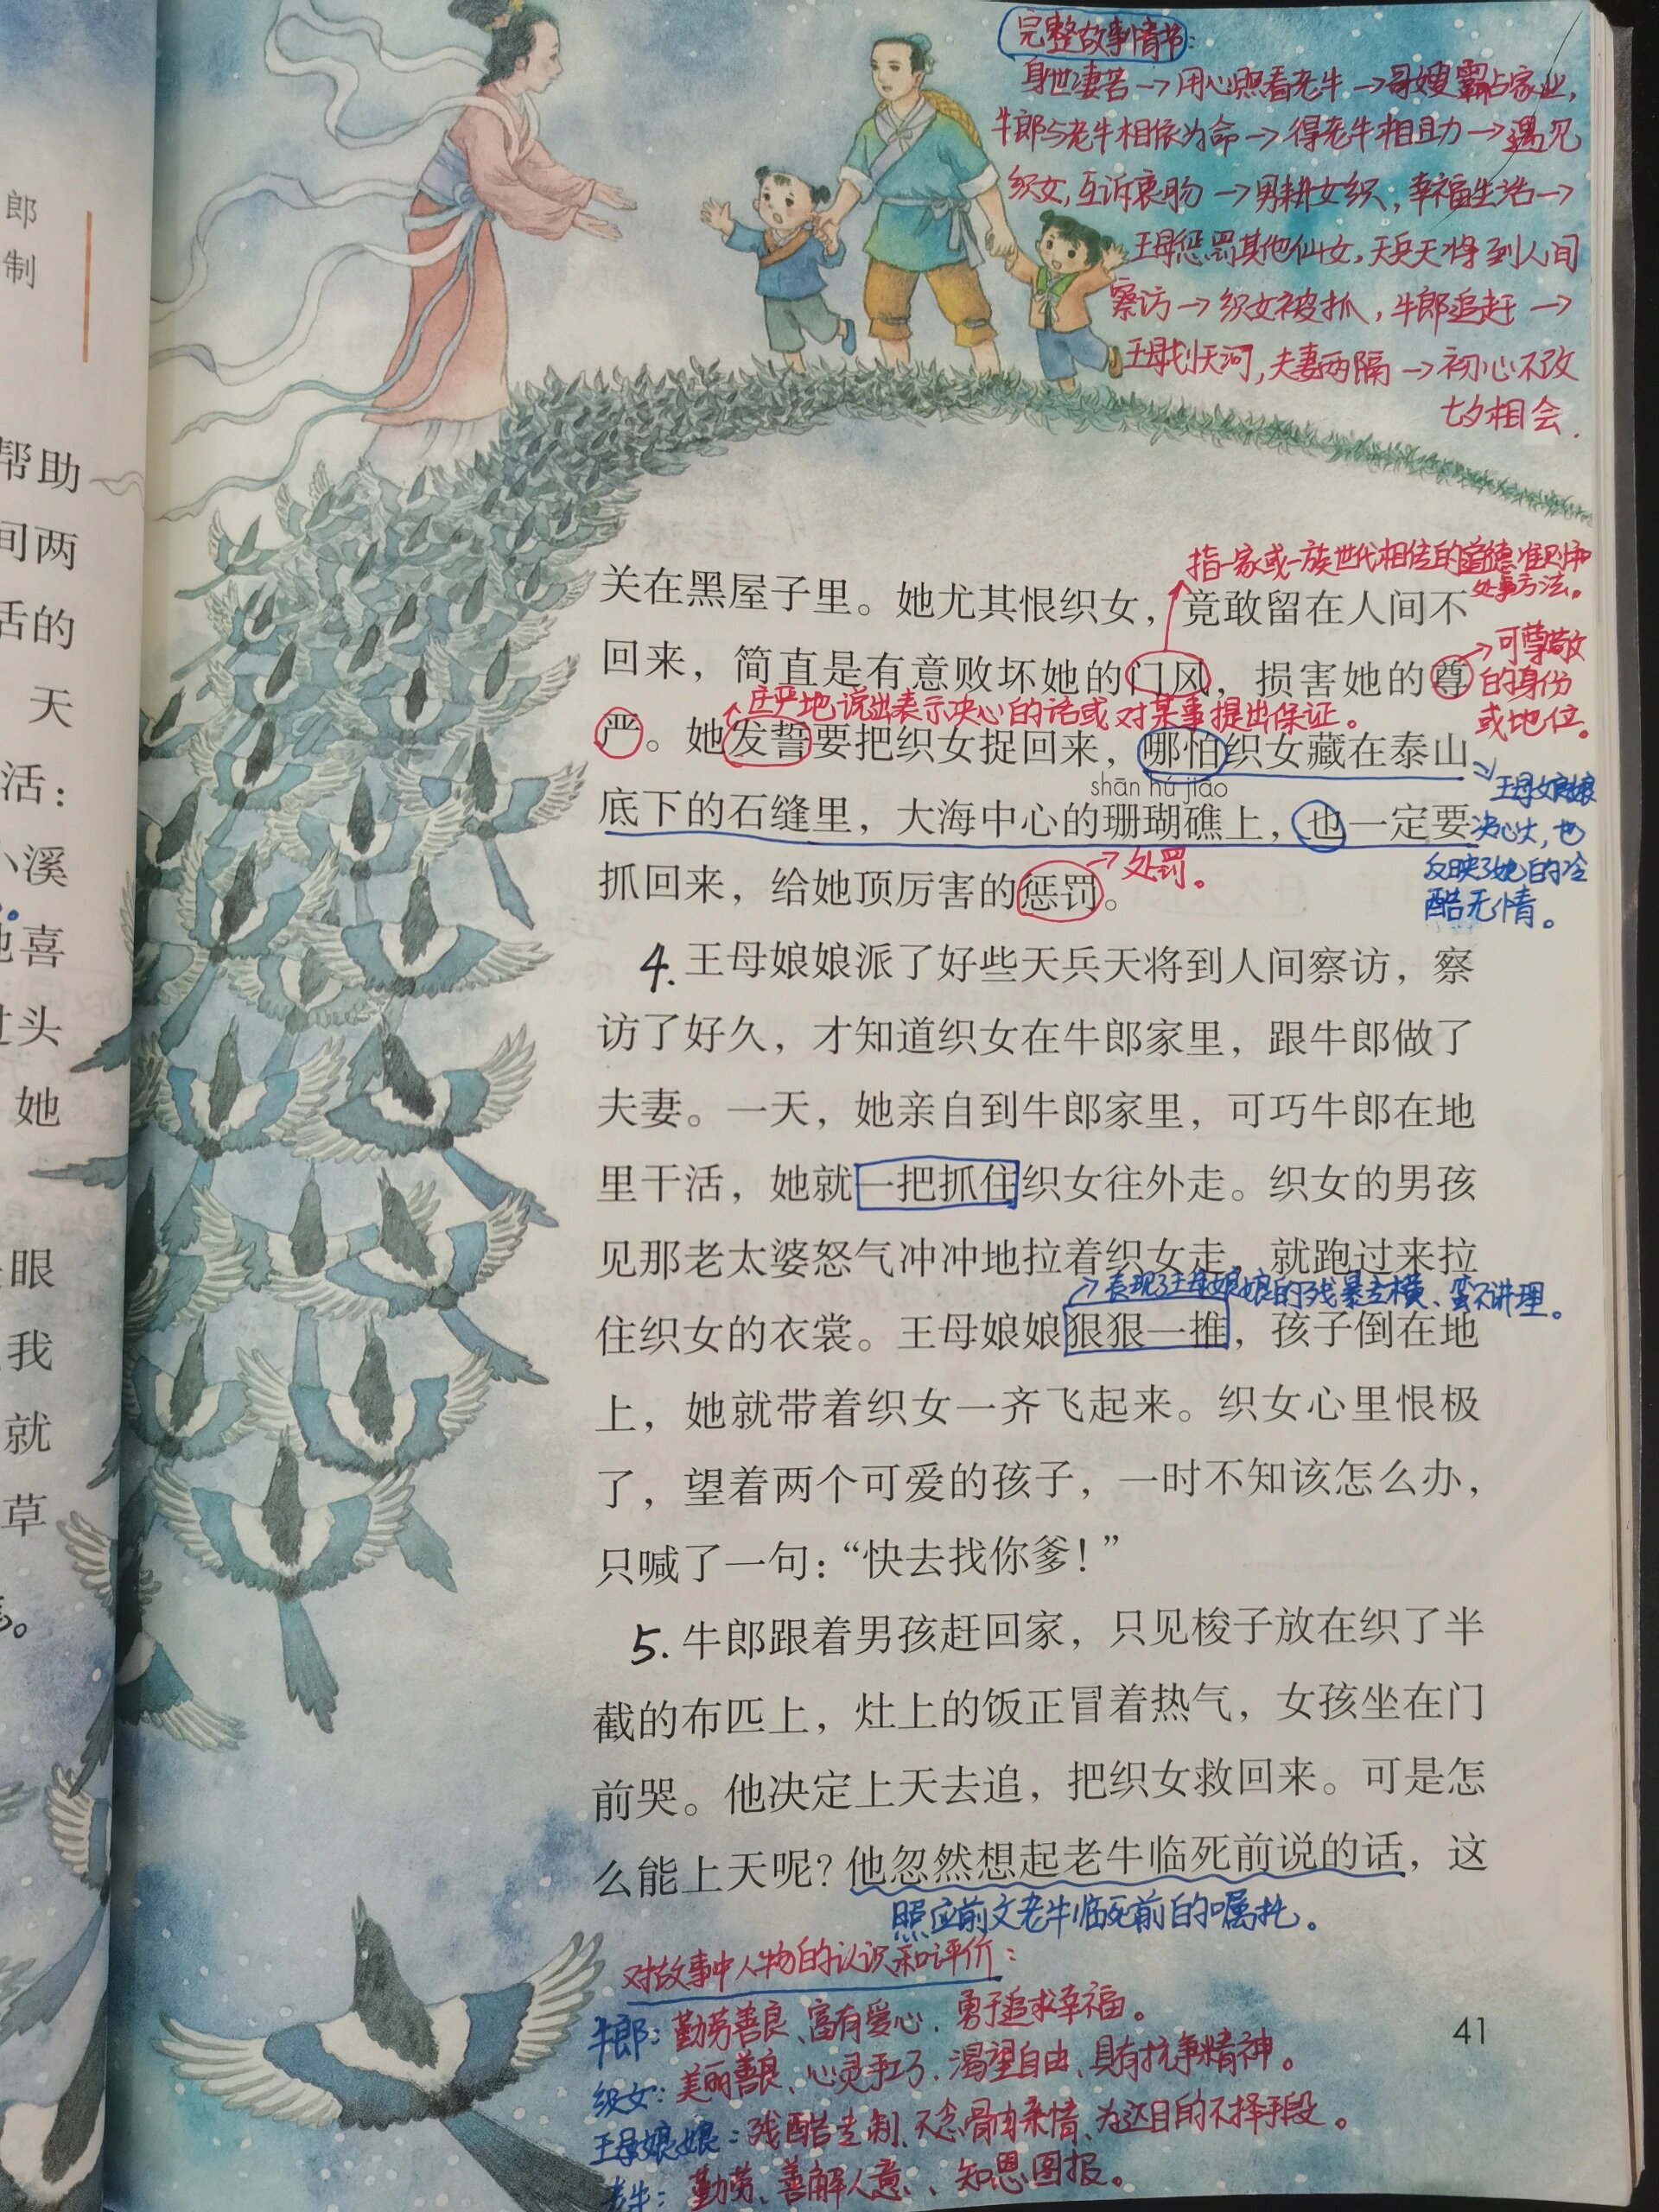 郎
制
帮助
间两
活的
天
活：
小溪
她喜
过头
她
眼
我
就
草
完整故事情节：
身世凄苦→用心照看老牛→哥嫂霸占家业，
牛郎与老牛相依为命→得老牛相助→遇见
织女，互诉衷肠→男耕女织，幸福生活→
王母惩罚其他仙女，天兵天将到人间
察访→织女被抓，牛郎追赶→
王母划天河，夫妻两隔→初心不改
七夕相会.
指一家或一族世代相传的道德准则和
处事方法。
关在黑屋子里。她尤其恨织女，竟敢留在人间不
回来，简直是有意败坏她的门风，损害她的尊
→可尊敬
的身份
或地位。
庄严地说出表示决心的话或对某事提出保证。
严。她发誓要把织女捉回来，哪怕织女藏在泰山
shān hú jiāo
底下的石缝里，大海中心的珊瑚礁上，也一定要
王母娘娘
决心大，也
反映了她的冷
酷无情。
抓回来，给她顶厉害的惩罚。
→处罚。
4.王母娘娘派了好些天兵天将到人间察访，察
访了好久，才知道织女在牛郎家里，跟牛郎做了
夫妻。一天，她亲自到牛郎家里，可巧牛郎在地
里干活，她就一把抓住织女往外走。织女的男孩
见那老太婆怒气冲冲地拉着织女走，就跑过来拉
→表现了王母娘娘的残暴专横、蛮不讲理。
住织女的衣裳。王母娘娘狠狠一推，孩子倒在地
上，她就带着织女一齐飞起来。织女心里恨极
了，望着两个可爱的孩子，一时不知该怎么办，
只喊了一句：“快去找你爹！”
5.牛郎跟着男孩赶回家，只见梭子放在织了半
截的布匹上，灶上的饭正冒着热气，女孩坐在门
前哭。他决定上天去追，把织女救回来。可是怎
么能上天呢？他忽然想起老牛临死前说的话，这
照应前文老牛临死前的嘱托。
对故事中人物的认识和评价：
牛郎：勤劳善良、富有爱心、勇于追求幸福。
织女：美丽善良、心灵手巧、渴望自由、具有抗争精神。
王母娘娘：残酷专制、不念骨肉亲情、为达目的不择手段。
老牛：勤劳、善解人意、知恩图报。
41